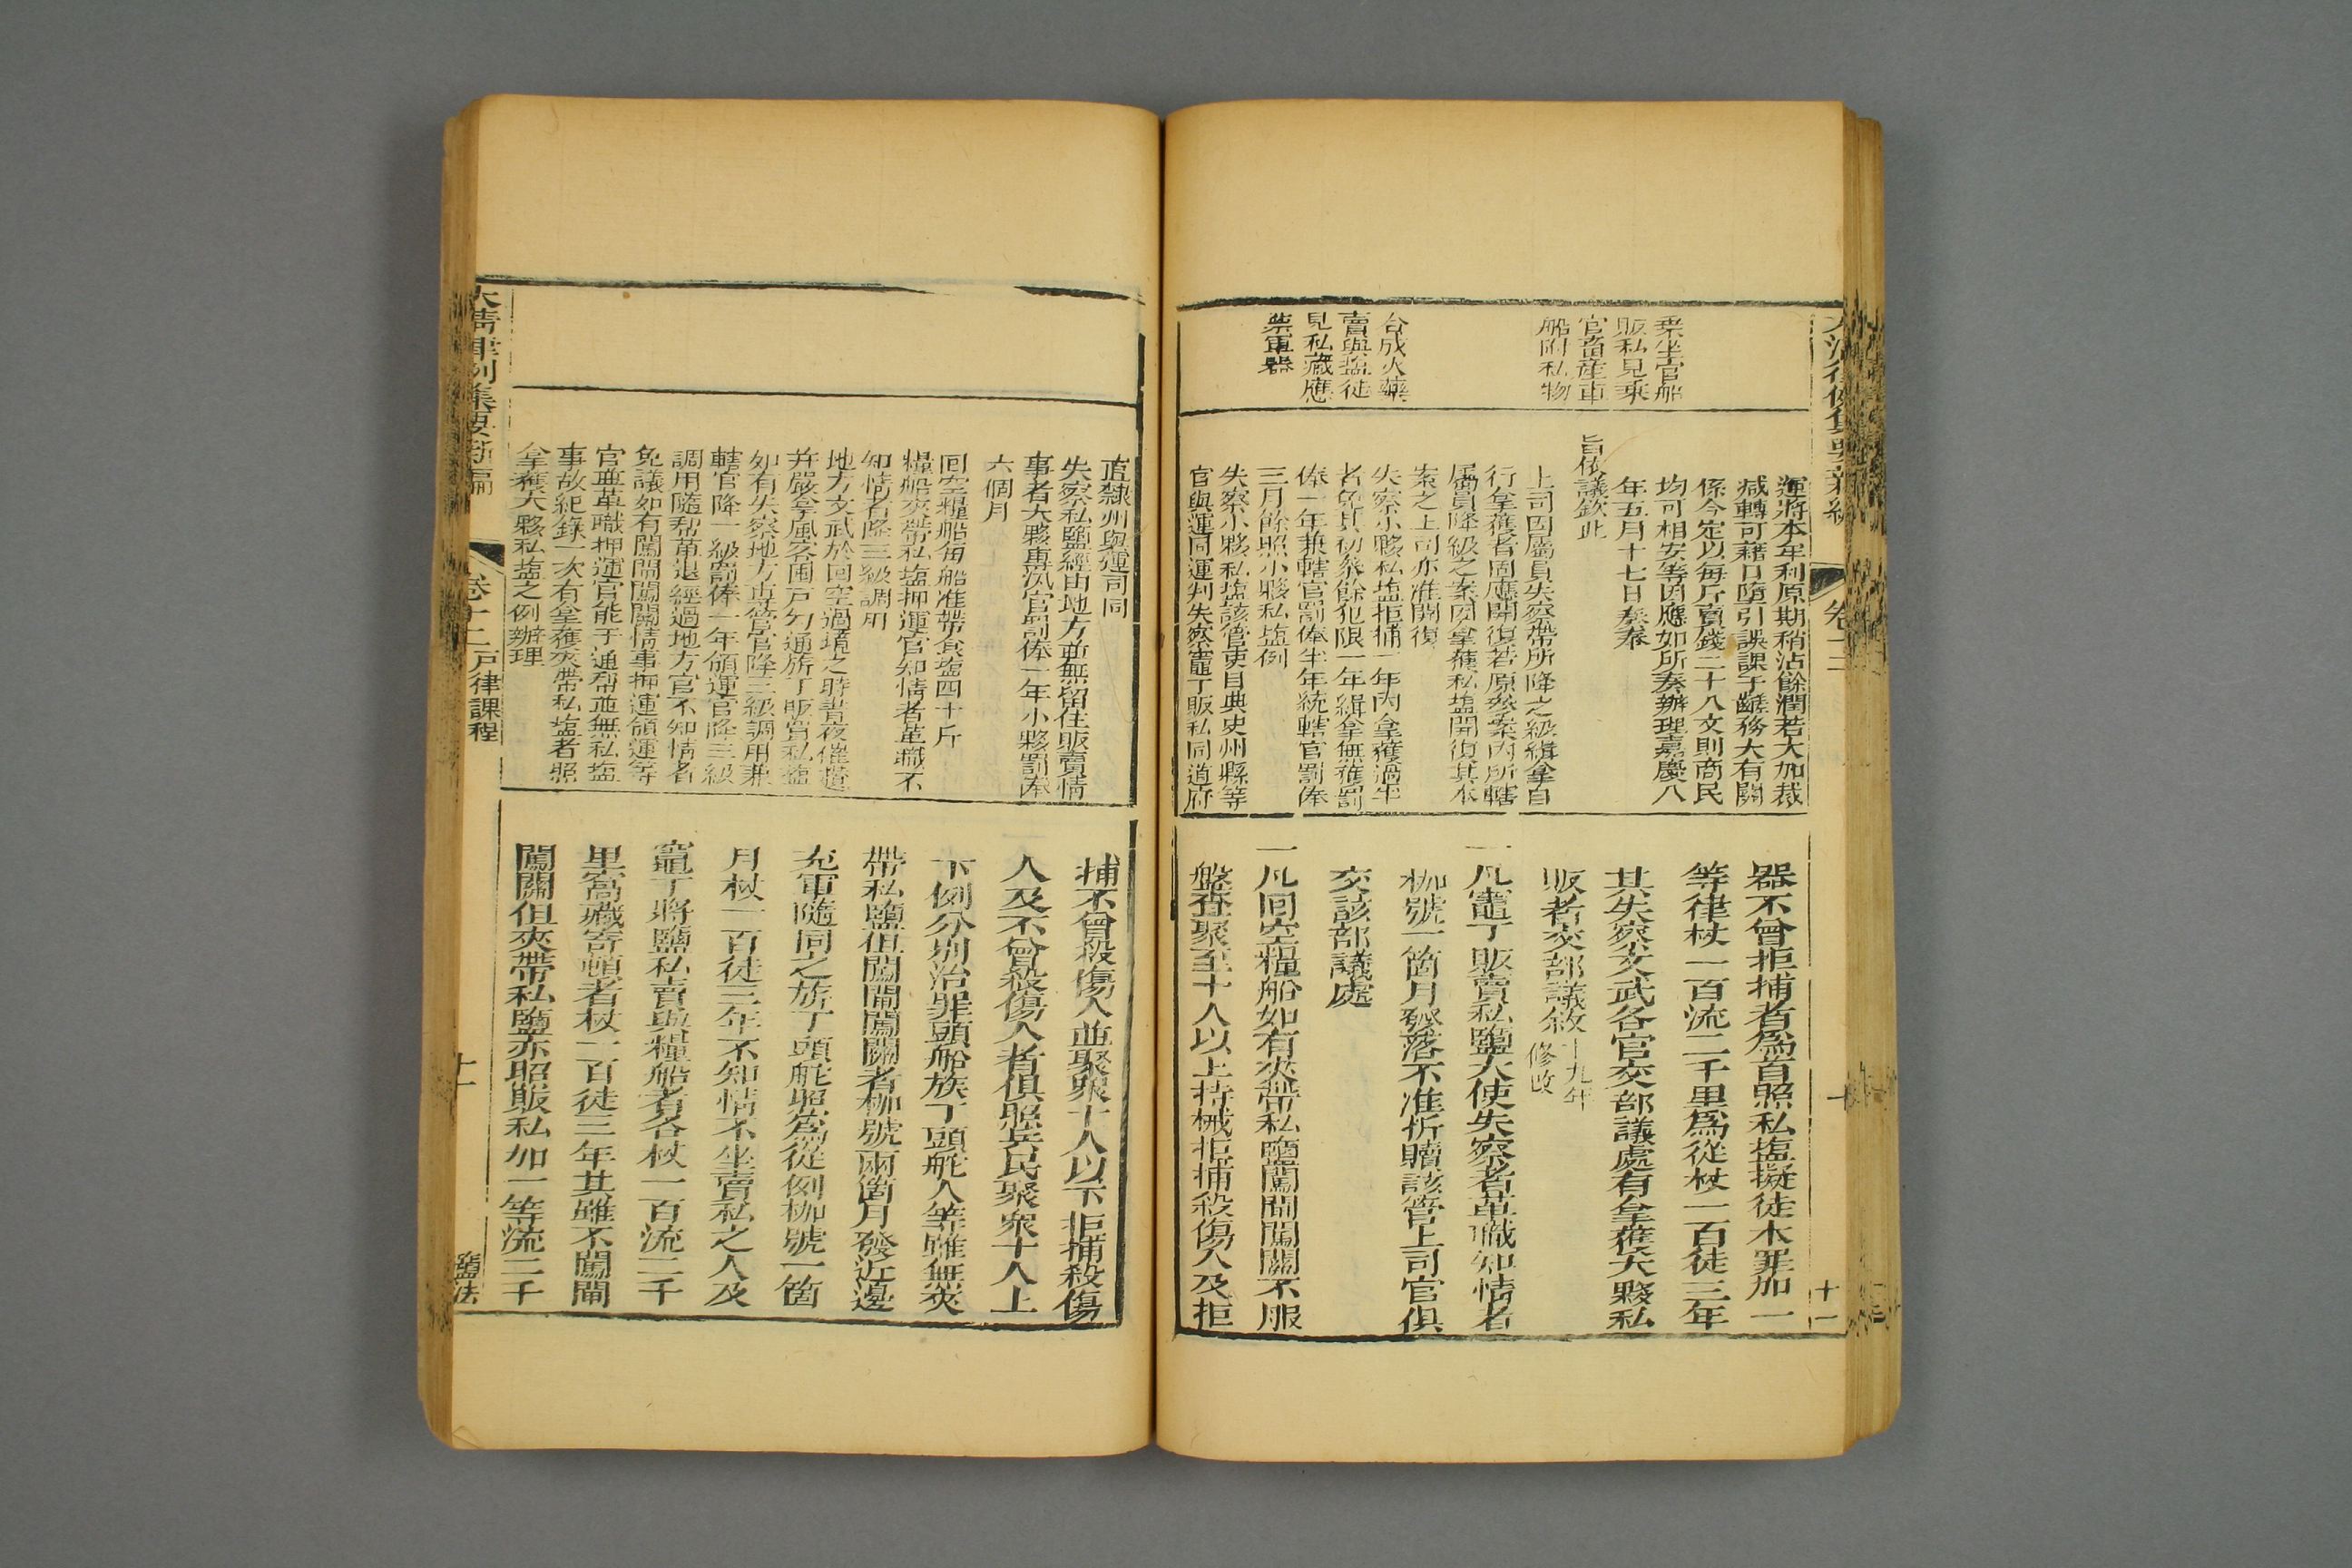 乘坐官船
販私見乘
官畜產車
船附私物
合成火藥
賣與鹽徒
見私藏應
禁軍器
運將本年利原期稍沾餘潤若大加裁
減轉可藉口墮引誤課于鹺務大有關
係今定以每斤賣錢二十八文則商民
均可相安等因應如所奏辦理嘉慶八
年五月十七日奏奉
旨依議欽此
上司因屬員失察帶所降之級緝拿自
行拿獲者固應開復若原叅案內所轄
屬員降級之案因拿獲私塩開復其本
案之上司亦准開復
失察小夥私塩拒捕一年內拿獲過半
者免其初叅餘犯限一年緝拿無獲罰
俸一年兼轄官罰俸半年統轄官罰俸
三月餘照小夥私塩例
失察小夥私塩該管吏目典史州縣等
官與運同運判失察竈丁販私同道府
器不曾拒捕者爲首照私塩擬徒本罪加一
等律杖一百流二千里爲從杖一百徒三年
其失察文武各官交部議處有拿獲大夥私
販者交部議敘十九年修改
一凡竈丁販賣私鹽大使失察者革職知情者
枷號一箇月發落不准折贖該管上司官俱
交該部議處
一凡回空糧船如有夾帶私鹽闖閘闖關不服
盤查聚至十人以上持械拒捕殺傷人及拒
卷十二
十一
直隸州與運司同
失察私鹽經由地方並無留住販賣情
事者大夥專汛官罰俸一年小夥罰俸
六個月
回空糧船每船准帶食塩四十斤
糧船夾帶私塩押運官知情者革職不
知情者降三級調用
地方文武於回空過境之時晝夜催攢
并嚴拿風客囤戶勾通旂丁販賣私塩
如有失察地方專管官降三級調用兼
轄官降一級罰俸一年領運官降三級
調用隨幫革退經過地方官不知情者
免議如有闖閘闖關情事押運領運等
官並革職押運官能于通幫並無私塩
事故紀錄一次有拿獲夾帶私塩者照
拿獲大夥私塩之例辦理
捕不曾殺傷人並聚衆十人以下拒捕殺傷
人及不曾殺傷人者俱照兵民聚衆十人上
下例分別治罪頭船旂丁頭舵人等雖無夾
帶私鹽但闖閘闖關者枷號兩箇月發近邊
充軍隨同之旂丁頭舵照爲從例枷號一箇
月杖一百徒三年不知情不坐賣私之人及
竈丁將鹽私賣與糧船者各杖一百流二千
里窩藏寄頓者杖一百徒三年其雖不闖閘
闖關但夾帶私鹽亦照販私加一等流二千
大清律例集要新編
卷十二戶律課程
十一
鹽法